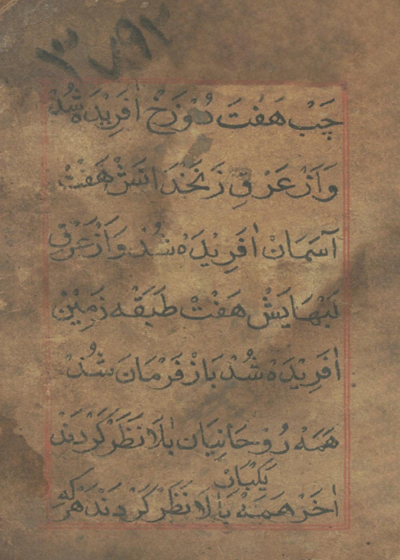 ۳۷۹۳
چَبْ هَفْتَ دُوْزَخْ اٰفَرِیْدَه شُدْ
وَاَزْ عَرَقِ زَنَخْدَانَشْ هَفْتْ
آسَمَانْ اٰفَرِیْدَه شُدْ وَاَزْ عَرَقِ
لَبْهَایَشْ هَفْتْ طَبَقَه زَمِیْنْ
اٰفَرِیْدَه شُدْ بَازْ فَرْمَانْ شُدْ
هَمَه رُوْحَانِیَانْ بَالَا نَظَرْ کَرْدَنْد
یَکْبَارْ
اٰخَرْ هَمَه بَالَا نَظَرْ کَرْدَنْد هَرْکِه